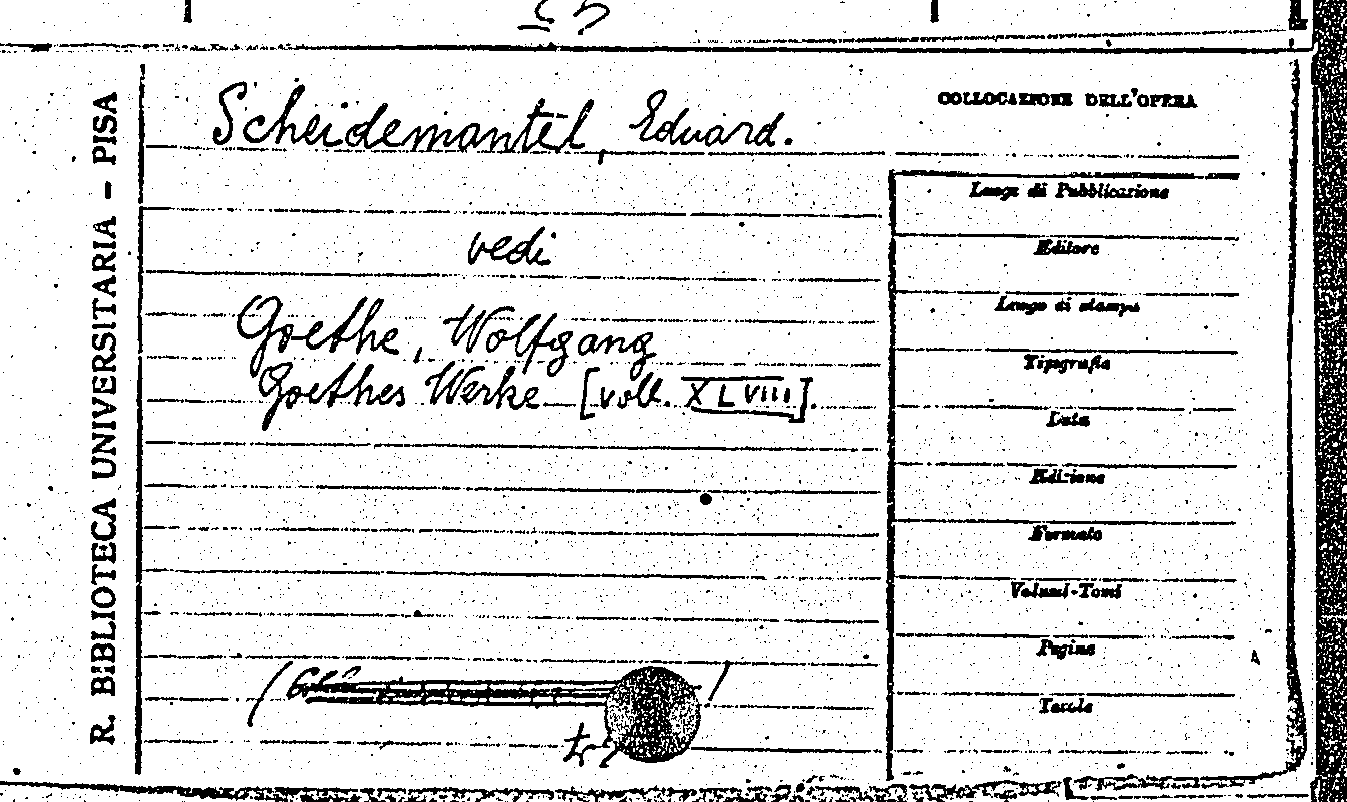 R. BIBLIOTECA UNIVERSITARIA - PISA
Scheidemantel, Eduard.
vedi
Goethe, Wolfgang
Goethes Werke [voll. XLVIII].
COLLOCAZIONE DELL'OPERA
Luogo di Pubblicazione
Editore
Luogo di stampa
Tipografia
Data
Edizione
Formato
Volumi-Tomi
Pagine
Tavole